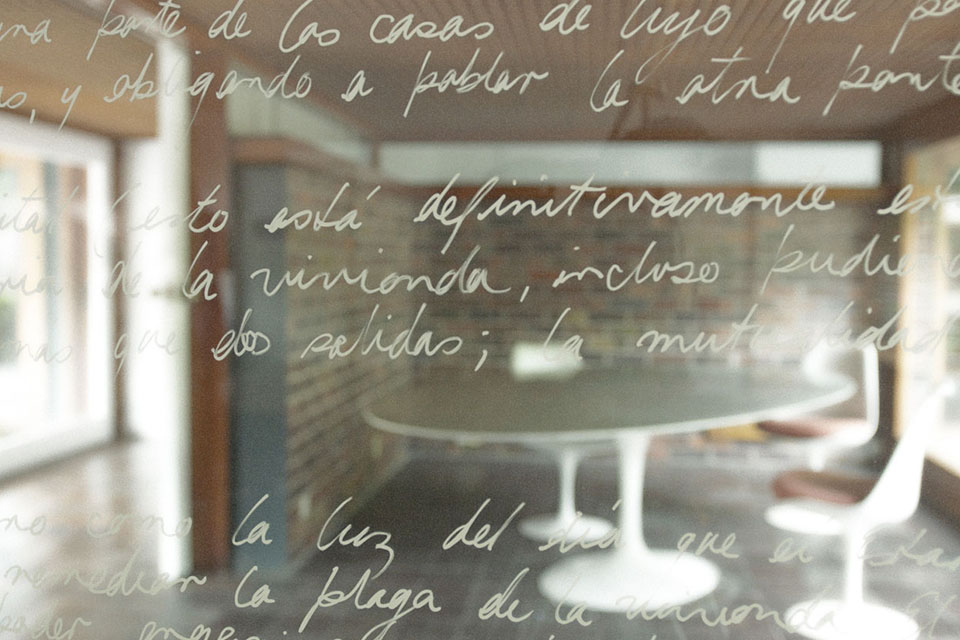 una parte de las casas de lujo que pe
os, y obligando a poblar la otra parte
esto está definitivamente est
de la vivienda, incluso pudie
que dos salidas; la mutualidad
no como la luz del día que el Esta
remediar la plaga de la vivienda. El
poder